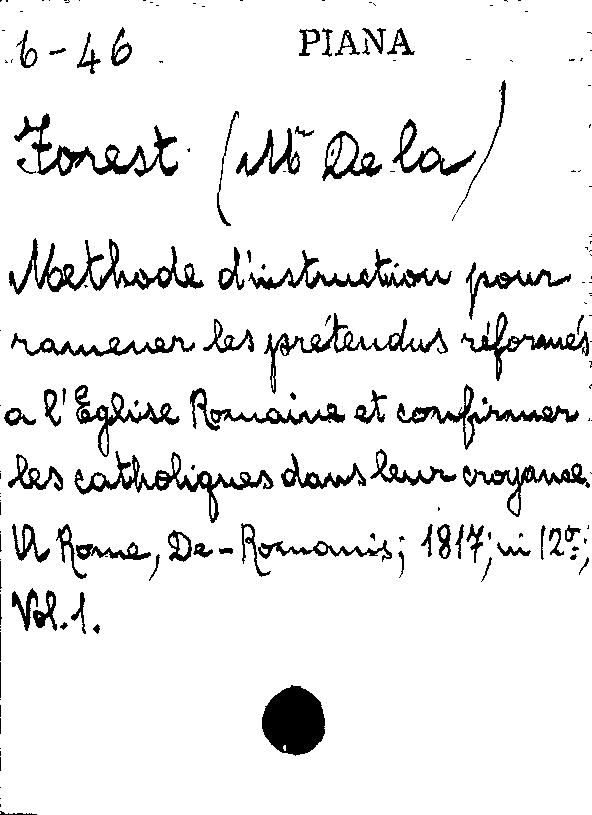 6-46 PIANA
Forest (Mr De la)
Methode d'instruction pour
ramener les prétendus réformés
a l'Eglise Romaine et confirmer
les catholiques dans leur croyance.
A Rome, De-Romanis; 1817; in 12º;
Vol. 1.